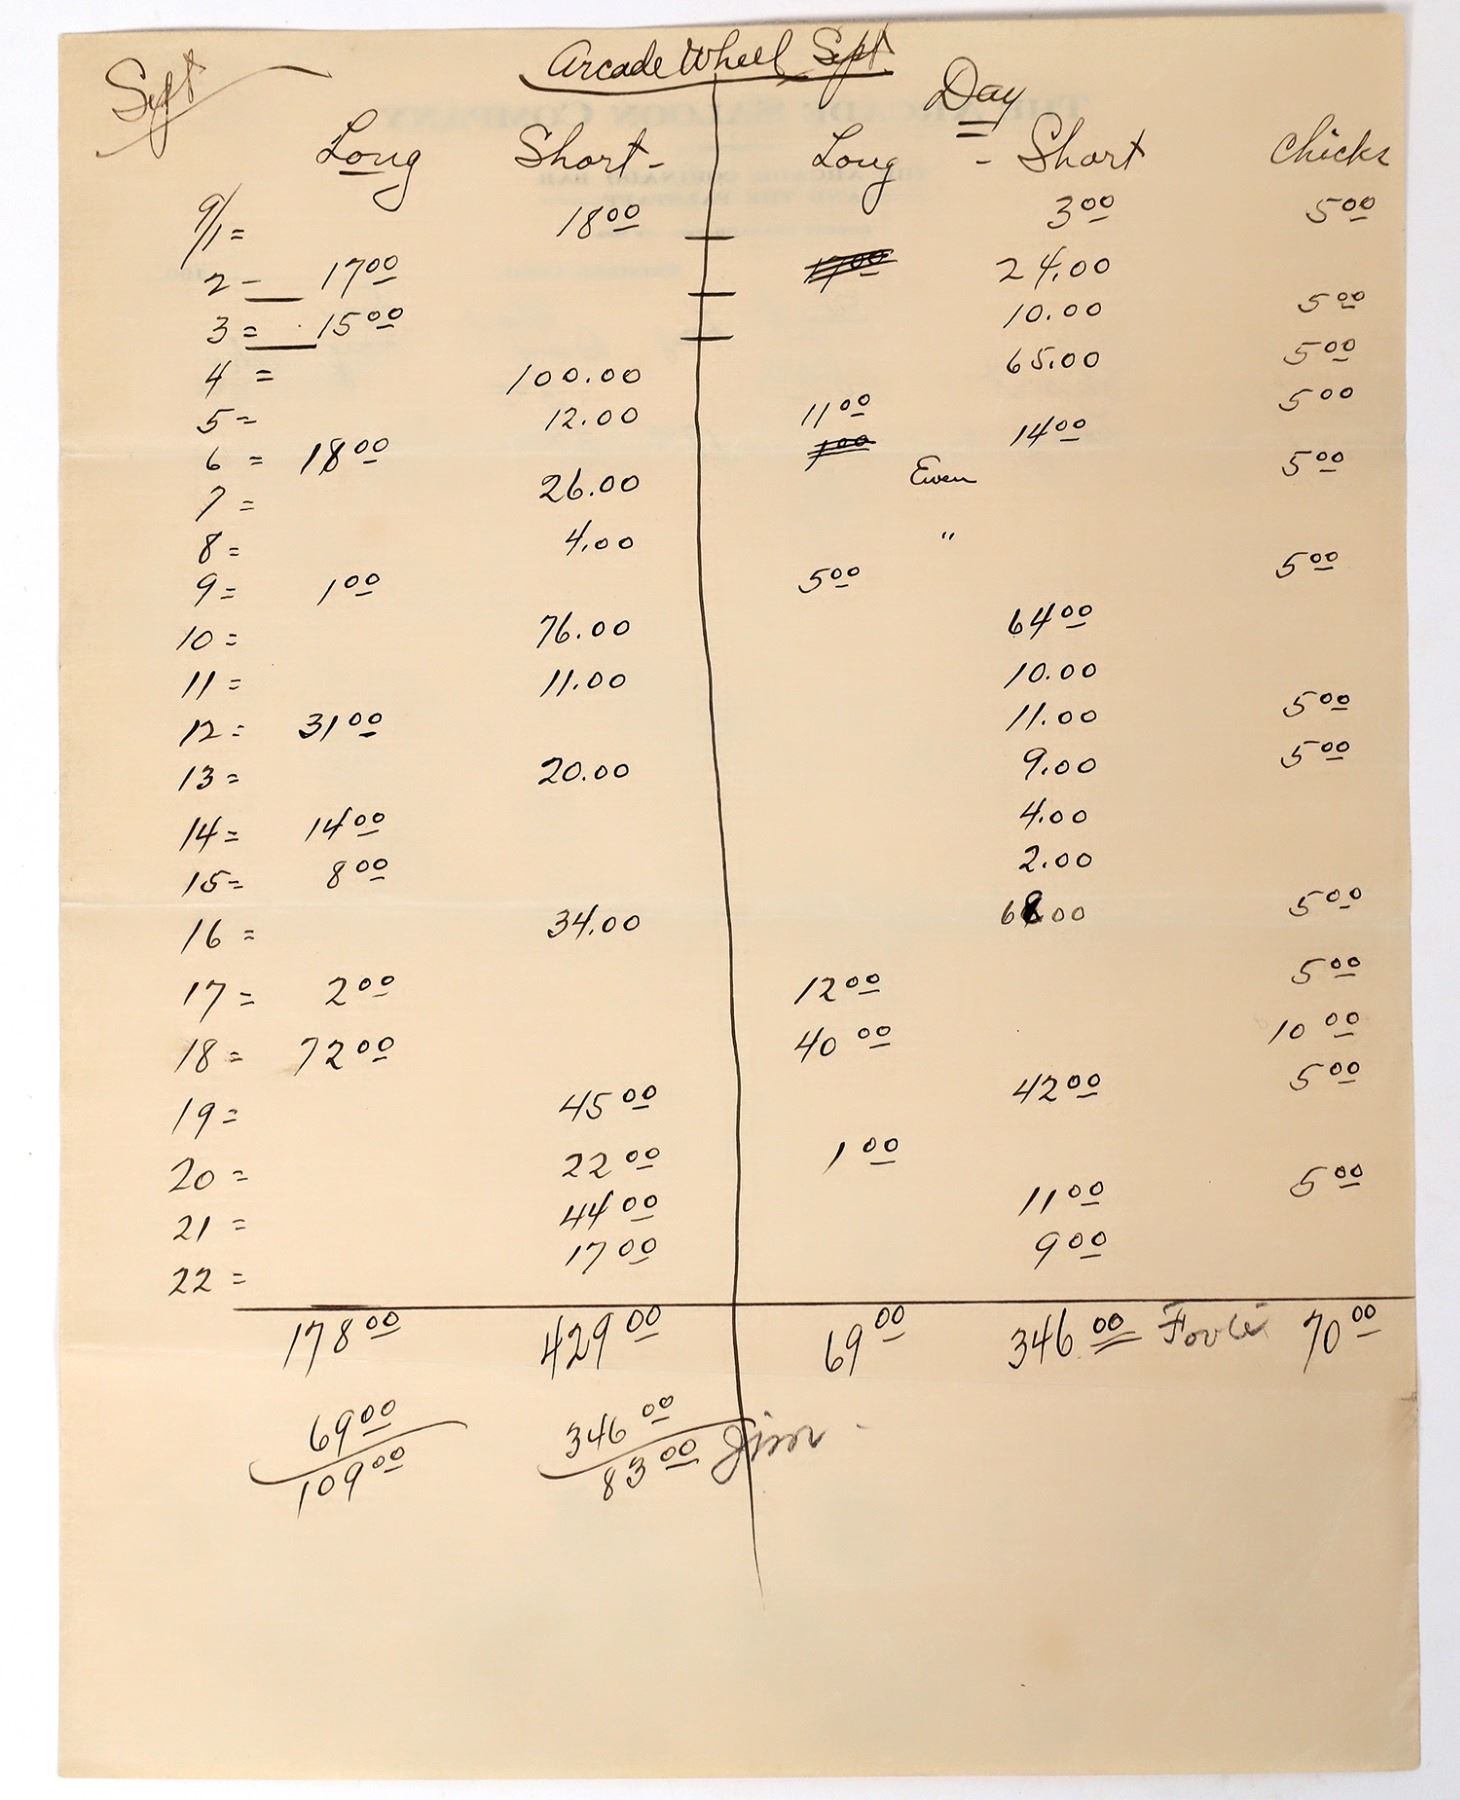 Arcade Wheel Sept.
Sept
Day
Long Short - Long - Short Chicks
9/1 = 18 00 3 00 5 00
2 - 17 00 24.00
3 = 15 00 10.00 5 00
4 = 100.00 65.00 5 00
5 = 12.00 11 00 5 00
6 = 18 00 14 00
7 = 26.00 Even 5 00
8 = 4.00 "
9 = 1 00 5 00 5 00
10 = 76.00 64 00
11 = 11.00 10.00
12 = 31 00 11.00 5 00
13 = 20.00 9.00 5 00
14 = 14 00 4.00
15 = 8 00 2.00
16 = 34.00 68.00 5 00
17 = 2 00 12 00 5 00
18 = 72 00 40 00 10 00
19 = 45 00 42 00 5 00
20 = 22 00 1 00
21 = 44 00 11 00 5 00
22 = 17 00 9 00
178 00 429 00 69 00 346 00 70 00
69 00 346 00
109 00 83 00 Jim -